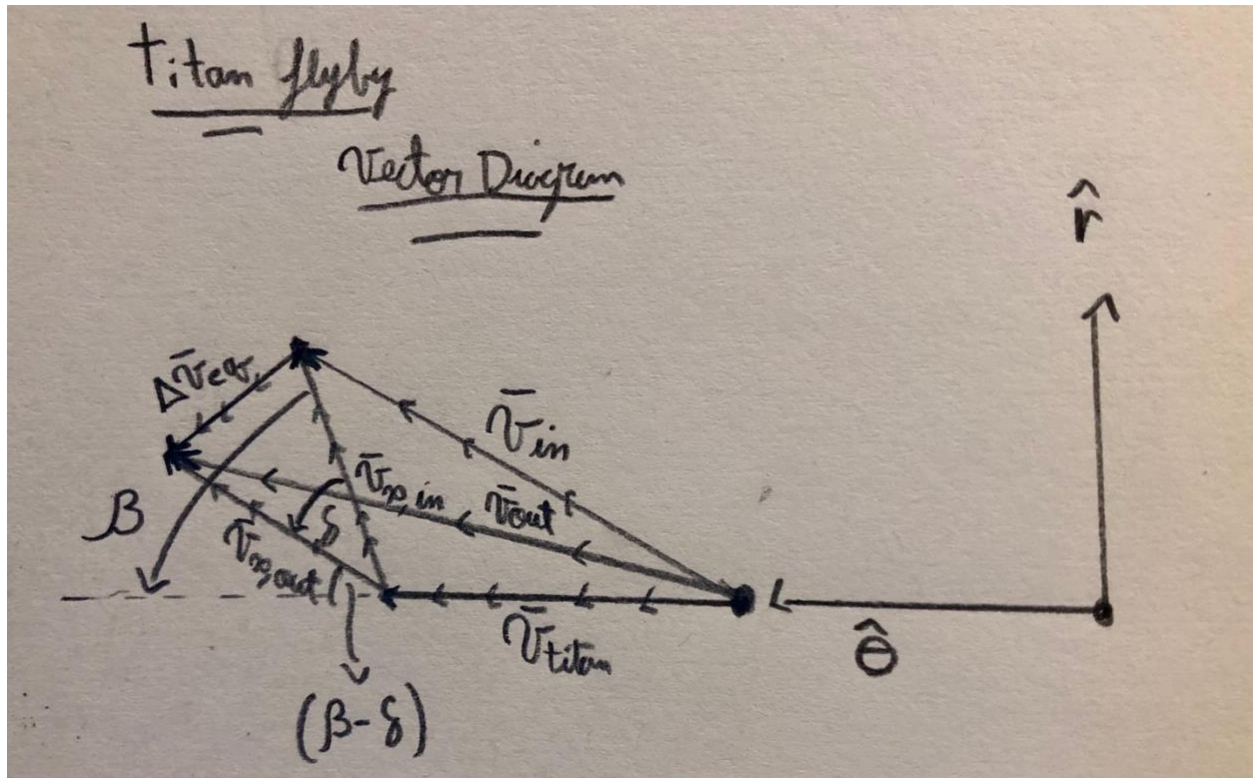 Titan flyby
Vector Diagram
r̂
Δv̄eq.
v̄in
β
v̄∞,in
v̄out
δ
v̄∞,out
v̄titan
θ̂
(β-δ)